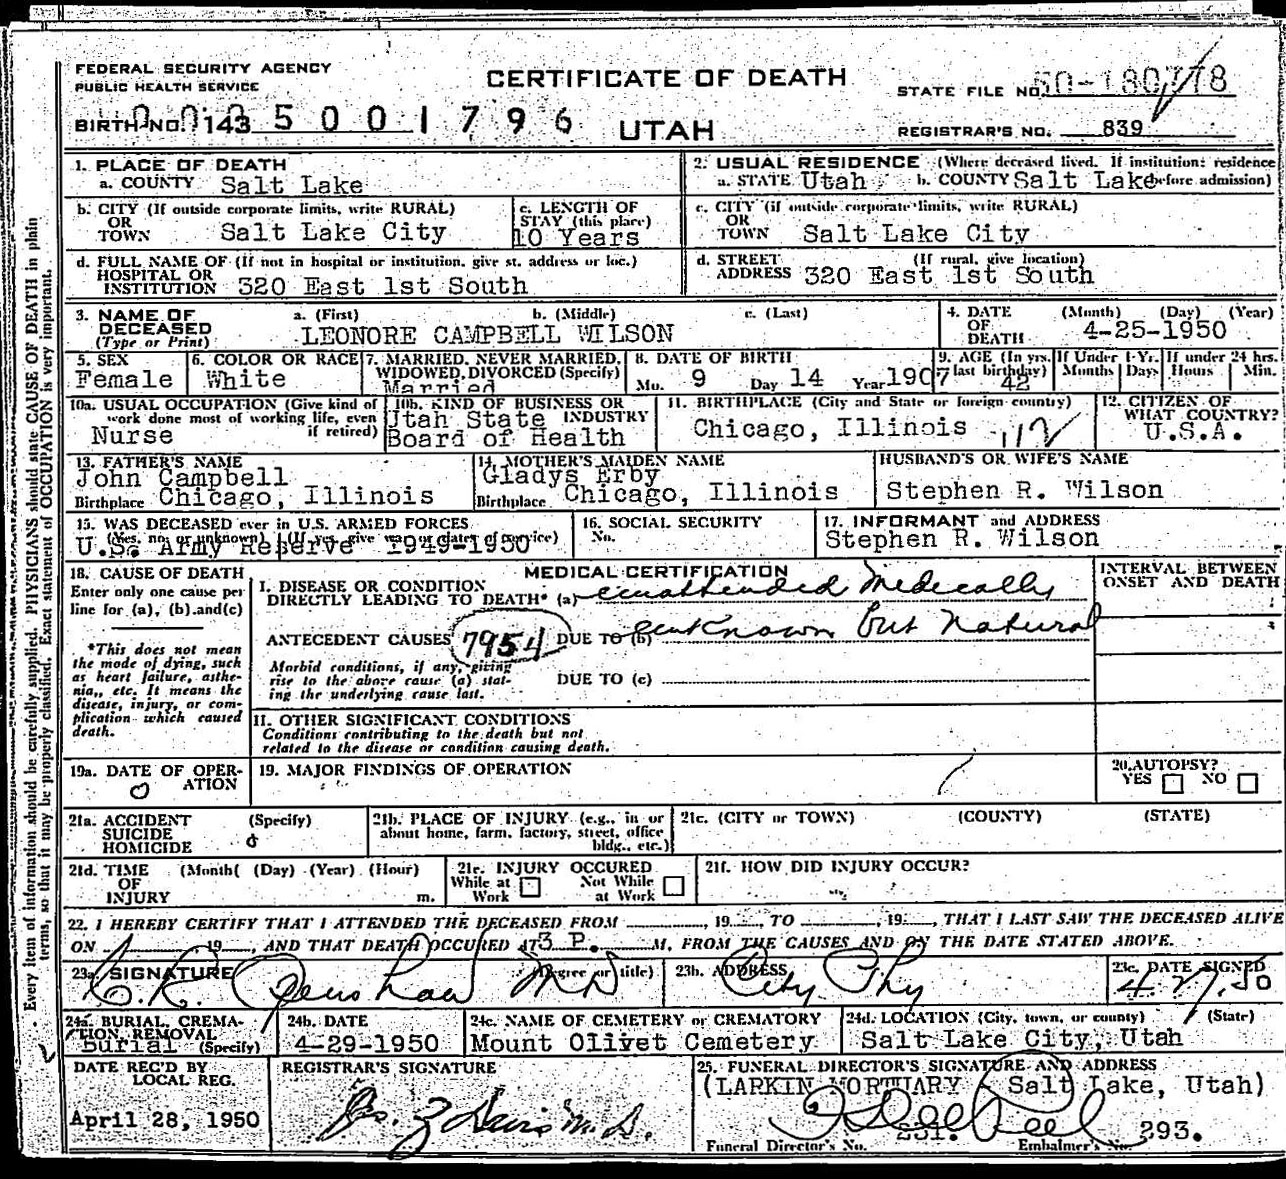 FEDERAL SECURITY AGENCY
PUBLIC HEALTH SERVICE
CERTIFICATE OF DEATH
STATE FILE NO.
BIRTH NO. 143 5001796
UTAH
REGISTRAR'S NO. 839
1. PLACE OF DEATH
a. COUNTY Salt Lake
2. USUAL RESIDENCE (Where deceased lived. If institution: residence before admission)
a. STATE Utah b. COUNTY Salt Lake
b. CITY (If outside corporate limits, write RURAL)
OR
TOWN Salt Lake City
c. LENGTH OF
STAY (this place)
10 Years
c. CITY (if outside corporate limits, write RURAL)
OR
TOWN Salt Lake City
d. FULL NAME OF (If not in hospital or institution, give st. address or loc.)
HOSPITAL OR
INSTITUTION 320 East 1st South
d. STREET (If rural, give location)
ADDRESS 320 East 1st South
3. NAME OF a. (First) b. (Middle) c. (Last)
DECEASED
(Type or Print) LEONORE CAMPBELL WILSON
4. DATE (Month) (Day) (Year)
OF
DEATH 4-25-1950
5. SEX
Female
6. COLOR OR RACE
White
7. MARRIED, NEVER MARRIED,
WIDOWED, DIVORCED (Specify)
Married
8. DATE OF BIRTH
Mo. 9 Day 14 Year 1907
9. AGE (In yrs. last birthday) 42
If Under 1 Yr.
Months Days
If under 24 hrs.
Hours Min.
10a. USUAL OCCUPATION (Give kind of
work done most of working life, even
if retired)
Nurse
10b. KIND OF BUSINESS OR
INDUSTRY
Utah State
Board of Health
11. BIRTHPLACE (City and State or foreign country)
Chicago, Illinois 112
12. CITIZEN OF
WHAT COUNTRY?
U.S.A.
13. FATHER'S NAME
John Campbell
Birthplace Chicago, Illinois
14. MOTHER'S MAIDEN NAME
Gladys Erby
Birthplace Chicago, Illinois
HUSBAND'S OR WIFE'S NAME
Stephen R. Wilson
15. WAS DECEASED ever in U.S. ARMED FORCES
(Yes, no, or unknown) (If yes, give war or dates of service)
U.S. Army Reserve 1949-1950
16. SOCIAL SECURITY
No.
17. INFORMANT and ADDRESS
Stephen R. Wilson
18. CAUSE OF DEATH
Enter only one cause per
line for (a), (b) and (c)
*This does not mean
the mode of dying, such
as heart failure, asthe-
nia, etc. It means the
disease, injury, or com-
plication which caused
death.
MEDICAL CERTIFICATION
INTERVAL BETWEEN
ONSET AND DEATH
I. DISEASE OR CONDITION
DIRECTLY LEADING TO DEATH* (a) unattended Medically
ANTECEDENT CAUSES 7954 DUE TO (b) unknown but natural
Morbid conditions, if any, giving
rise to the above cause (a) stat-
ing the underlying cause last.
DUE TO (c)
II. OTHER SIGNIFICANT CONDITIONS
Conditions contributing to the death but not
related to the disease or condition causing death.
19a. DATE OF OPER-
ATION
0
19. MAJOR FINDINGS OF OPERATION
20. AUTOPSY?
YES NO
21a. ACCIDENT (Specify)
SUICIDE
HOMICIDE 0
21b. PLACE OF INJURY (e.g., in or
about home, farm, factory, street, office
bldg., etc.)
21c. (CITY or TOWN) (COUNTY) (STATE)
21d. TIME (Month( (Day) (Year) (Hour)
OF
INJURY m.
21e. INJURY OCCURED
While at Work Not While at Work
21f. HOW DID INJURY OCCUR?
22. I HEREBY CERTIFY THAT I ATTENDED THE DECEASED FROM , 19 , TO , 19 , THAT I LAST SAW THE DECEASED ALIVE
ON 19 , AND THAT DEATH OCCURED AT 3 P. M, FROM THE CAUSES AND ON THE DATE STATED ABOVE.
23a. SIGNATURE (Degree or title)
C. R. Openshaw MD
23b. ADDRESS
City Phy
23c. DATE SIGNED
4.27.50
24a. BURIAL, CREMA-
TION, REMOVAL
(Specify)
Burial
24b. DATE
4-29-1950
24c. NAME OF CEMETERY or CREMATORY
Mount Olivet Cemetery
24d. LOCATION (City, town, or county) (State)
Salt Lake City, Utah
DATE REC'D BY
LOCAL REG.
April 28, 1950
REGISTRAR'S SIGNATURE
25. FUNERAL DIRECTOR'S SIGNATURE AND ADDRESS
(LARKIN MORTUARY Salt Lake, Utah)
Funeral Director's No. 231. Embalmer's No. 293.
Every item of information should be carefully supplied. PHYSICIANS should state CAUSE OF DEATH in plain
terms, so that it may be properly classified. Exact statement of OCCUPATION is very important.